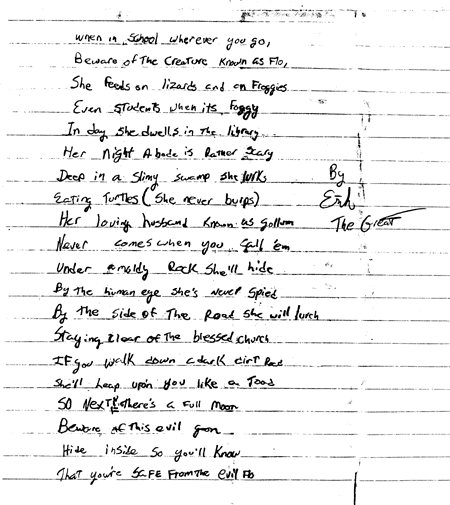 when in School wherever you go,
Beware of The Creature Known as Flo,
She feeds on lizards and on Froggies
Even Students when its foggy
In day she dwells in The library
Her Night Abode is Rather Scary
Deep in a slimy swamp she lurks
Eating Turtles (She never burps)
Her loving husband Known as Gollum
Never comes when you Call 'em
Under a moldy Rock She'll hide
By the human eye she's Never Spied
By the side of The Road she will lurch
Staying Clear of The blessed church
IF you walk down a dark dirt Road
She'll Leap upon you like a Toad
SO Next there's a Full Moon
Beware of This evil goon
Hide inside So you'll Know
That you're SAFE From The evil Flo
By
The Great